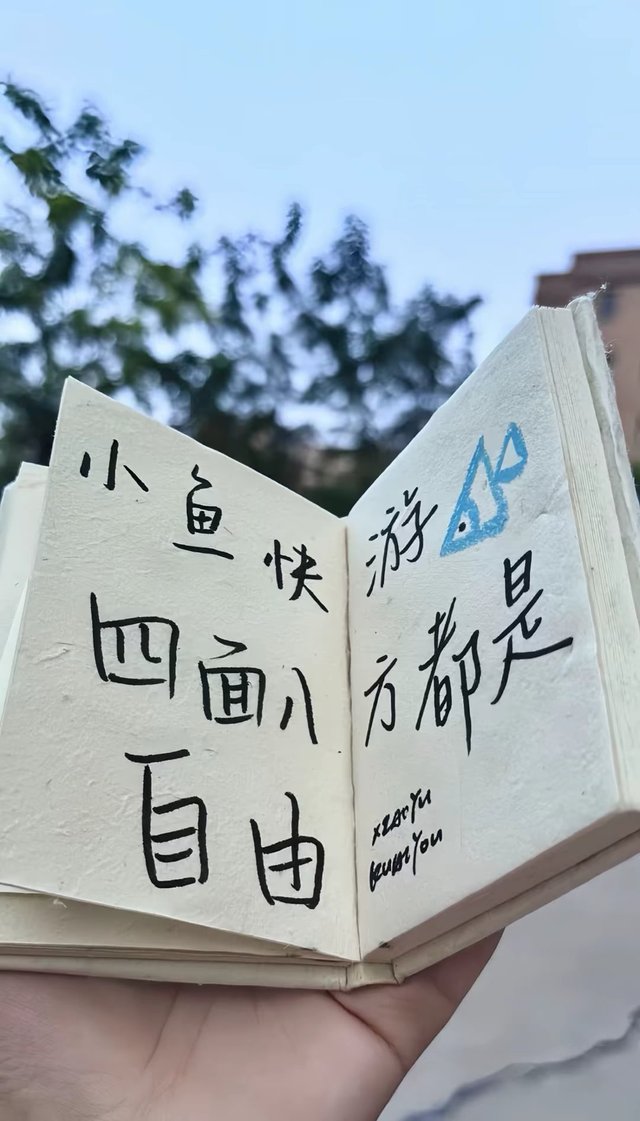 小鱼快游
四面八方都是
自由
XIAOYU
KUAIYOU